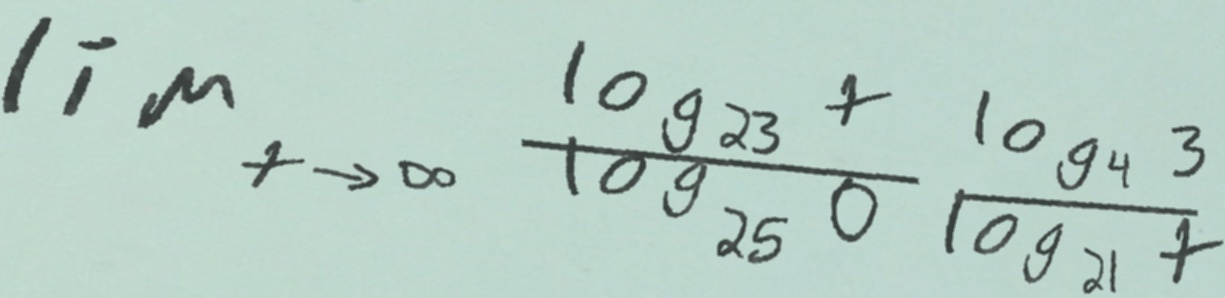 \lim_{t \to \infty} \frac{\log_{23} t}{\log_{25} 0} \frac{\log_4 3}{\log_{21} t}